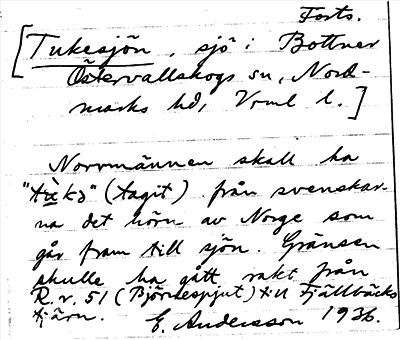 Forts.
[Tukesjön, sjö i Bottner
Östervallskogs sn, Nord-
marks hd, Vrml l.]
Norrmännen skall ha
"tùkə" (tagit) från svenskar-
na det hörn av Norge som
går fram till sjön. Gränsen
skulle ha gått rakt från
R. r. 51 (Björnespjut) till Fjällbäcks
tjärn.
E. Andersson 1936.